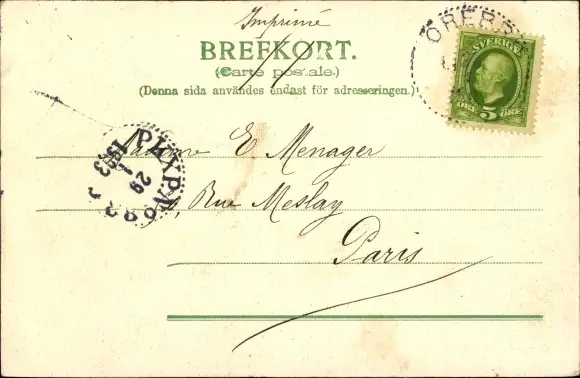 Imprimé
BREFKORT.
(Carte postale.)
(Denna sida användes endast för adresseringen.)
ÖREBRO
SVERIGE
5
ÖRE ÖRE
PKXP. No
29
1903
E. Menager
Rue Meslay
Paris